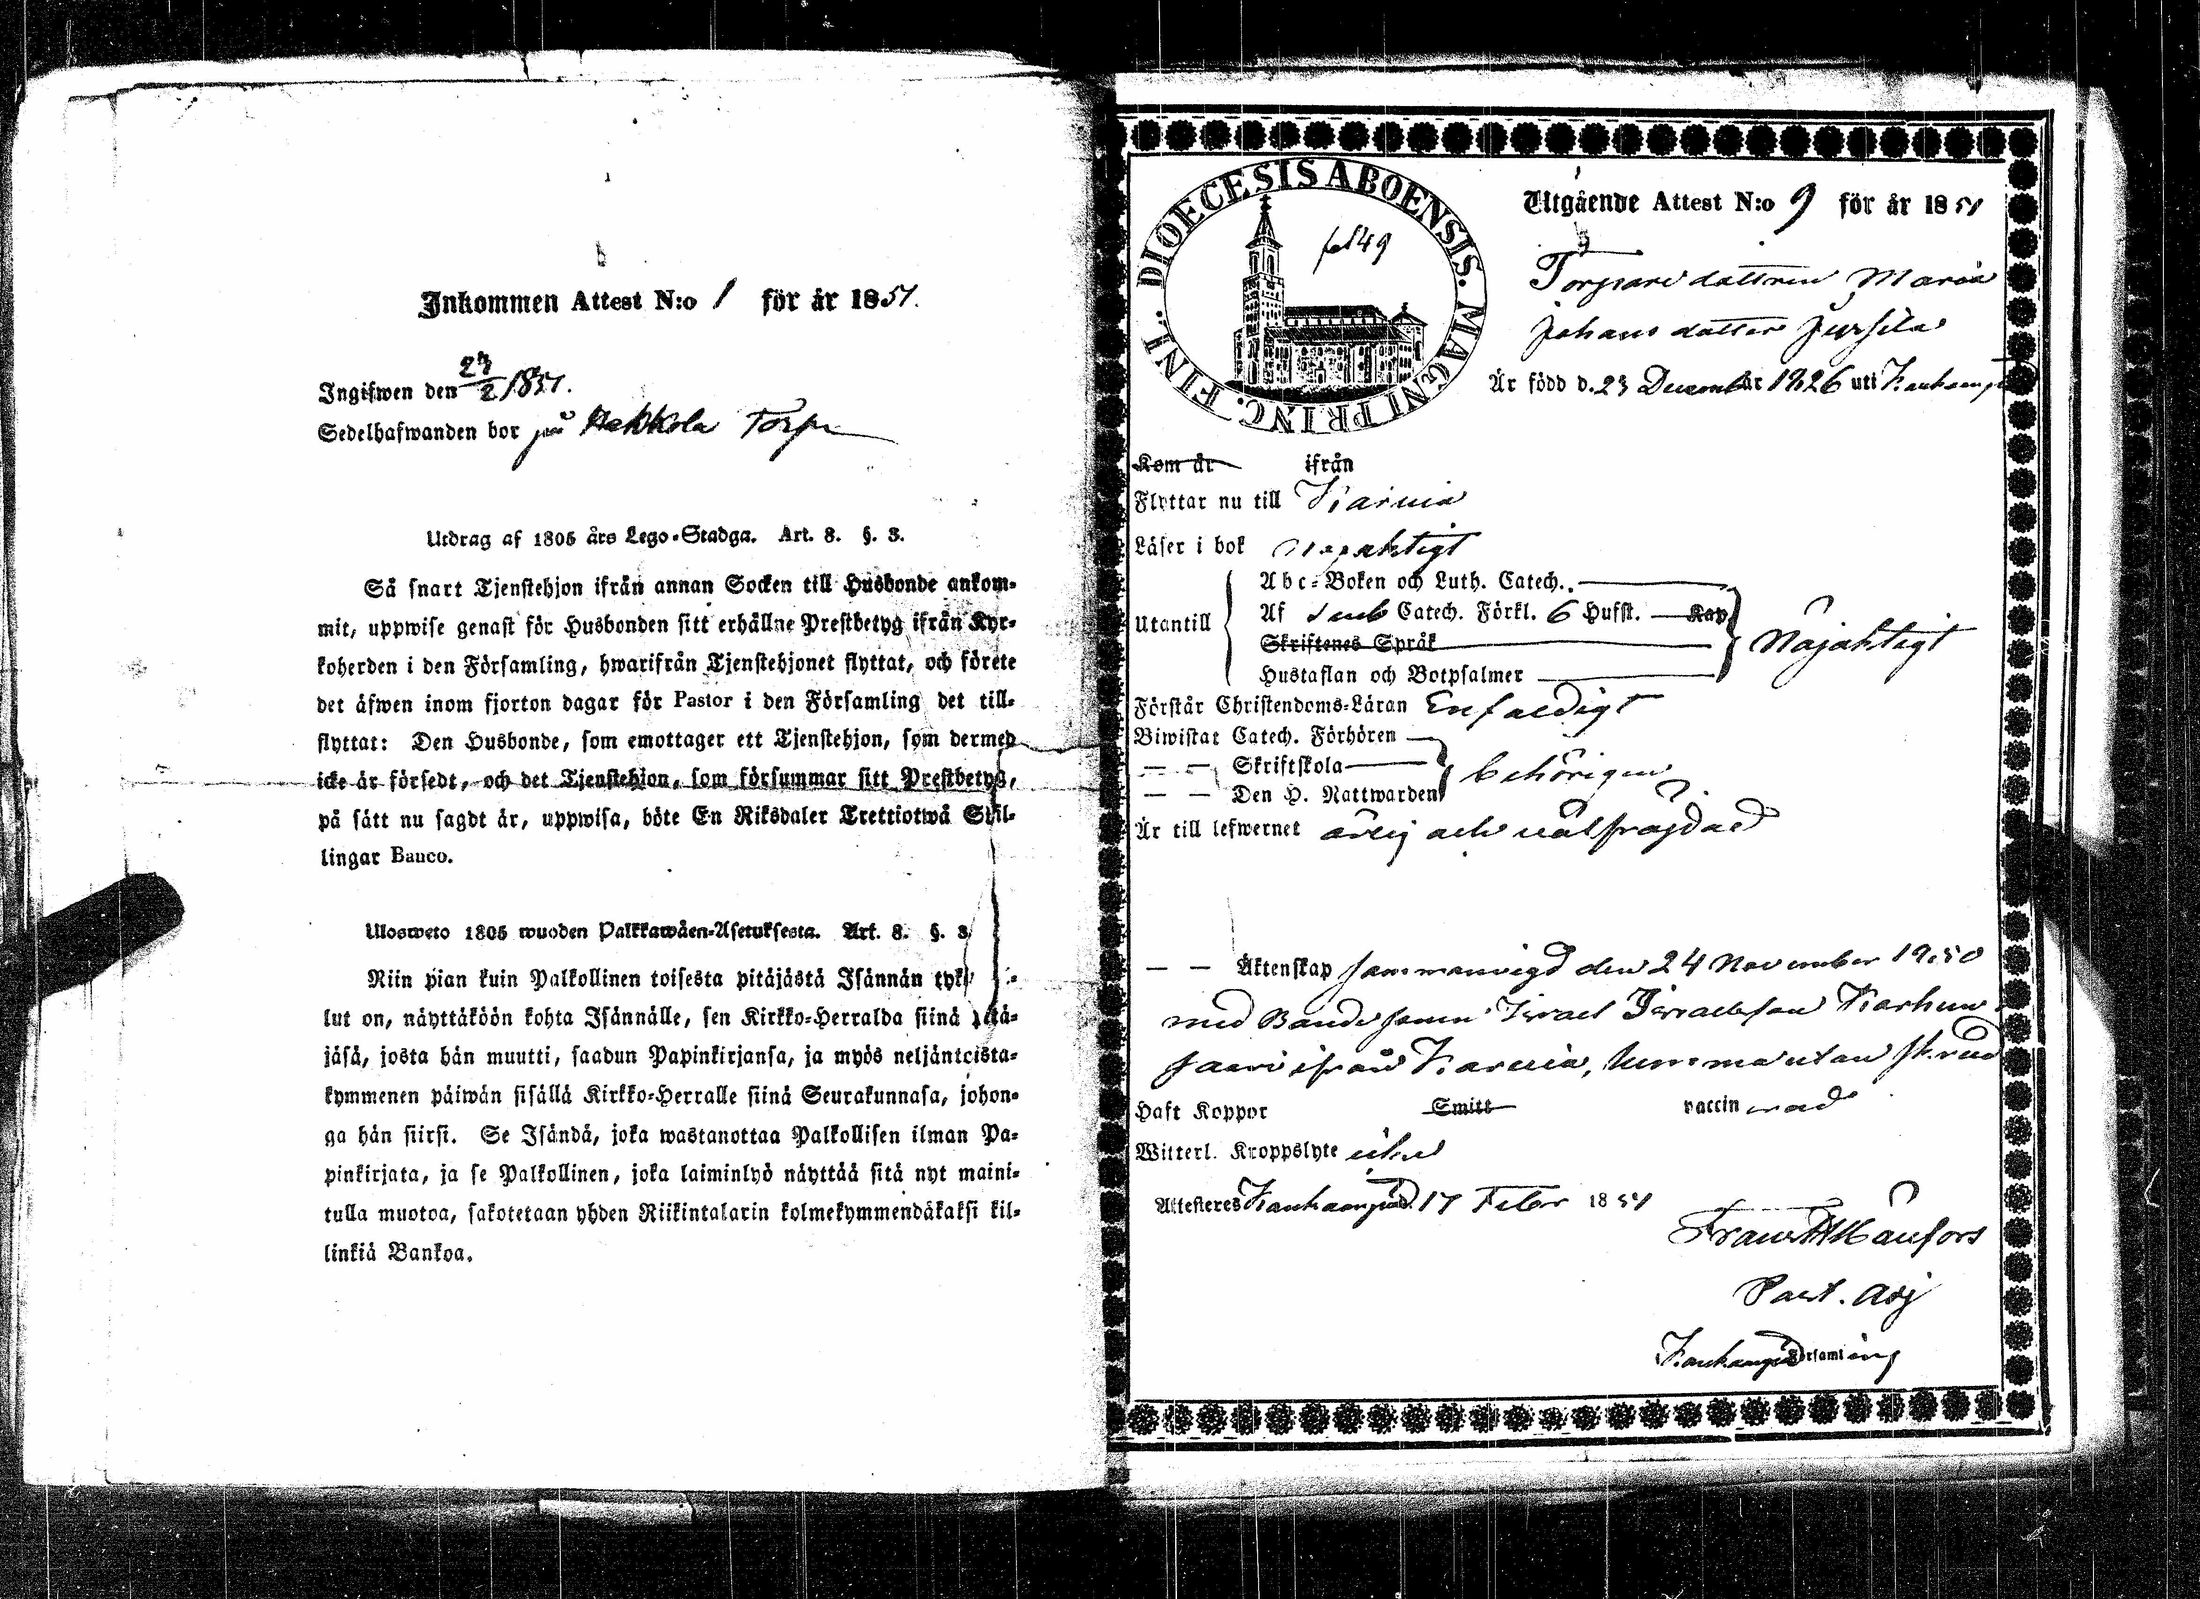 Inkommen Attest N:o 1 för år 1851.
Ingifwen den 27/2 1851.
Sedelhafwanden bor på Torp
Utdrag af 1805 års Lego-Stadga. Art. 8. §. 3.
Så snart Tjenstehjon ifrån annan Socken till Husbonde ankom-
mit, uppwise genast för Husbonden sitt erhållne Prestbetyg ifrån Kyr-
koherden i den Församling, hwarifrån Tjenstehjonet flyttat, och förete
det äfwen inom fjorton dagar för Pastor i den Församling det till-
flyttat: Den Husbonde, som emottager ett Tjenstehjon, som dermed
icke är försedt, och det Tjenstehjon, som försummar sitt Prestbetyg,
på sätt nu sagdt är, uppwisa, böte En Riksdaler Trettiotwå Skil-
lingar Banco.
Ulosweto 1805 wuoden Palkkawäen-Asetuksesta. Art. 8. §. 3.
Niin pian kuin Palkollinen toisesta pitäjästä Isännän tykö
lut on, näyttäköön kohta Isännälle, sen Kirkko-Herralda siinä pitä-
jäsä, josta hän muutti, saadun Papinkirjansa, ja myös neljäntoista-
kymmenen päiwän sisällä Kirkko-Herralle siinä Seurakunnasa, johon-
ga hän siirsi. Se Isändä, joka wastanottaa Palkollisen ilman Pa-
pinkirjata, ja se Palkollinen, joka laiminlyö näyttää sitä nyt maini-
tulla muotoa, sakotetaan yhden Riikintalarin kolmekymmendäkaksi kil-
linkiä Bankoa.
DIOECESIS ABOENSIS. MAGNI PRINC. FINL.
fol 49
Utgående Attest N:o 9 för år 1851
Torparedottren Maria
Johansdotter
Är född d. 23 December 1826 uti Kauhajoki
Kom år ifrån
Flyttar nu till Karvia
Läser i bok nöjaktigt
Utantill
Abc-Boken och Luth. Catech.
Af Catech. Förkl. 6 Hufst. Kap
Skriftenes Språk
Hustaflan och Botpsalmer
Nöjaktigt
Förstår Christendoms-Läran Enfaldigt
Biwistat Catech. Förhören
— — Skriftskola
— — Den H. Nattwarden
behörigen
Är till lefwernet ärlig och välfräjdad
— — Äktenskap sammanvigd den 24 November 1850
med Bondesonen Israel Israelsson Karhun
saari ifrån Karvia, hemma utan skrud
Haft Koppor Smitt vaccinerad
Witterl. Kroppslyte
Attesteras 17 Febr 1851
Frans
Past. Adj
Församling